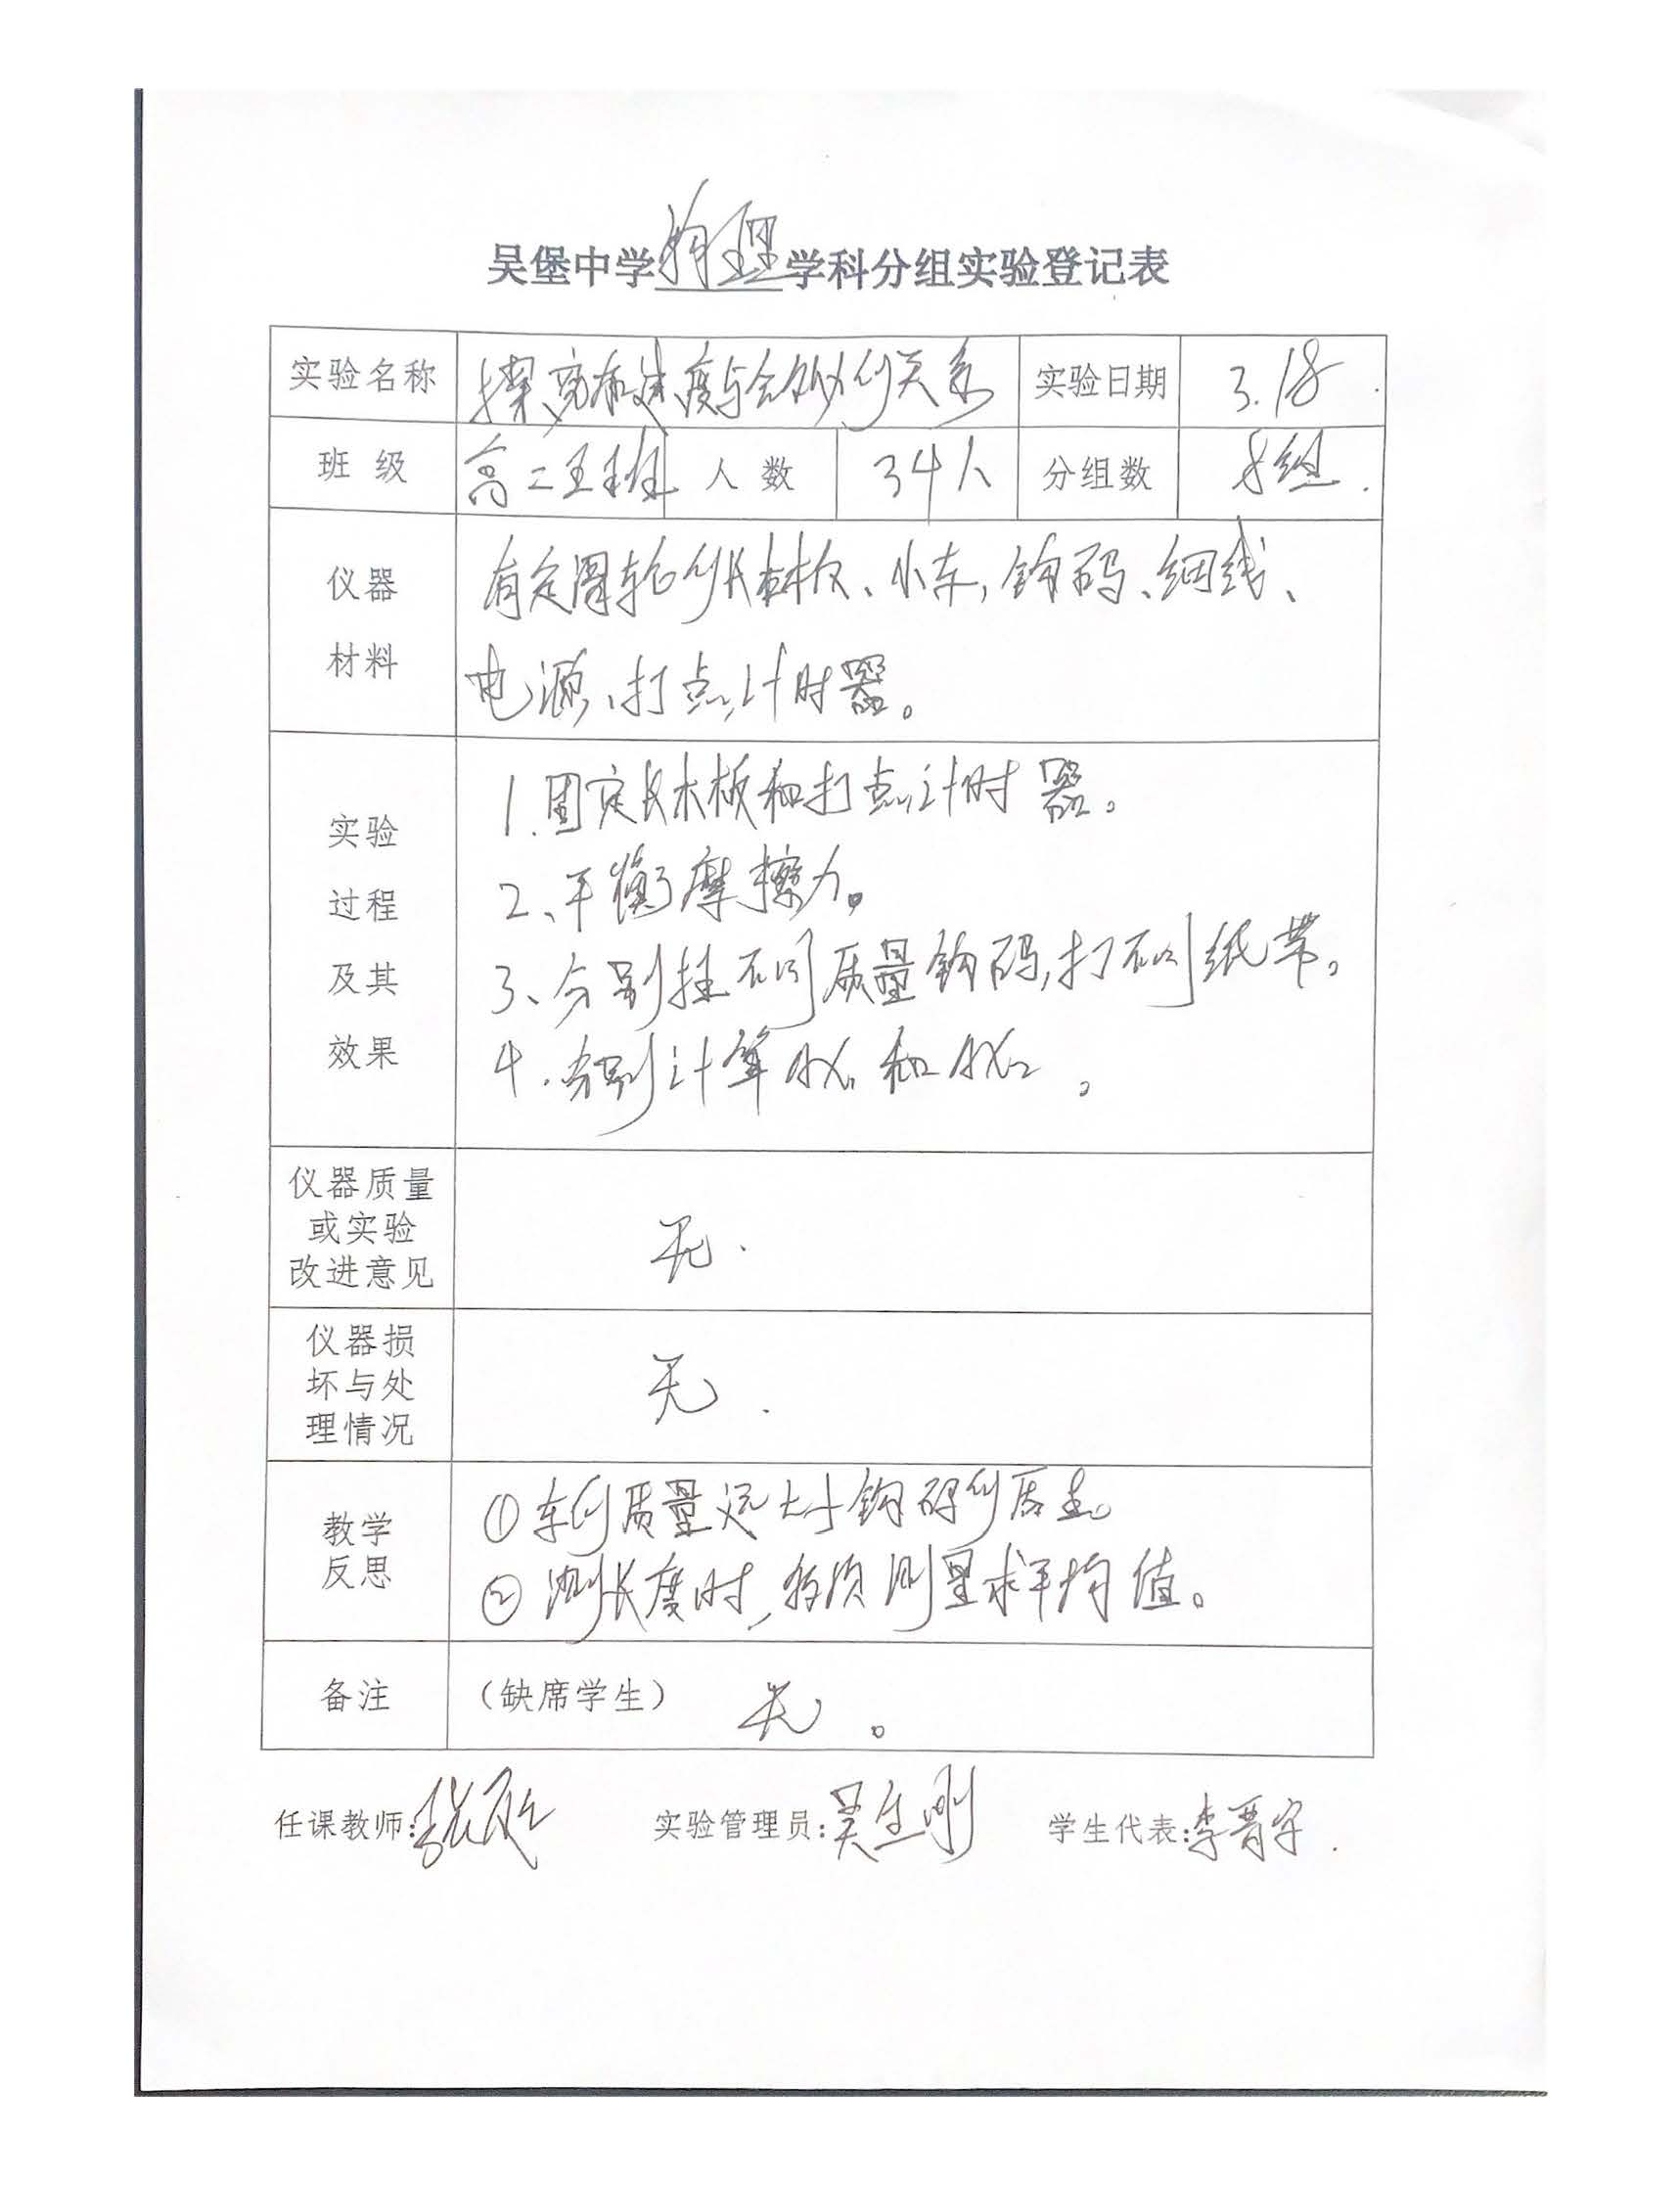 吴堡中学物理学科分组实验登记表
实验名称 探究加速度与合外力的关系 实验日期 3.18
班级 高二 班 人数 34人 分组数 8组.
仪器材料
有定滑轮的长木板、小车,钩码、细线、
电源、打点计时器。
实验过程及其效果
1.固定长木板和打点计时器。
2、平衡摩擦力。
3、分别挂不同质量钩码,打不同纸带。
4.分别计算 和 。
仪器质量
或实验
改进意见
无.
仪器损
坏与处
理情况
无.
教学
反思
①车的质量远大于钩码的质量。
②测长度时,多次测量求平均值。
备注 (缺席学生) 无。
任课教师:张 实验管理员:吴生刚 学生代表:李晋宇.